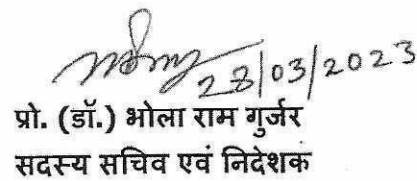 28/03/2023
प्रो. (डॉ.) भोला राम गुर्जर
सदस्य सचिव एवं निदेशक